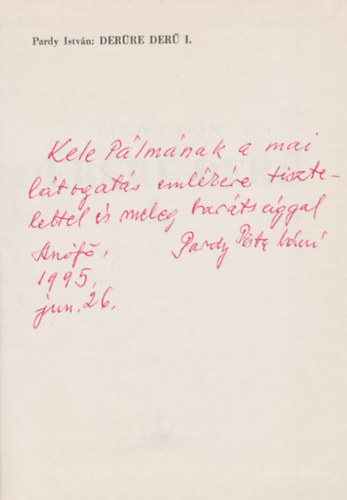 Pardy István: DERŰRE DERŰ I.
Kele Pálmának a mai
látogatás emlékére tiszte-
lettel és meleg barátsággal
Pardy
1995.
jun. 26.